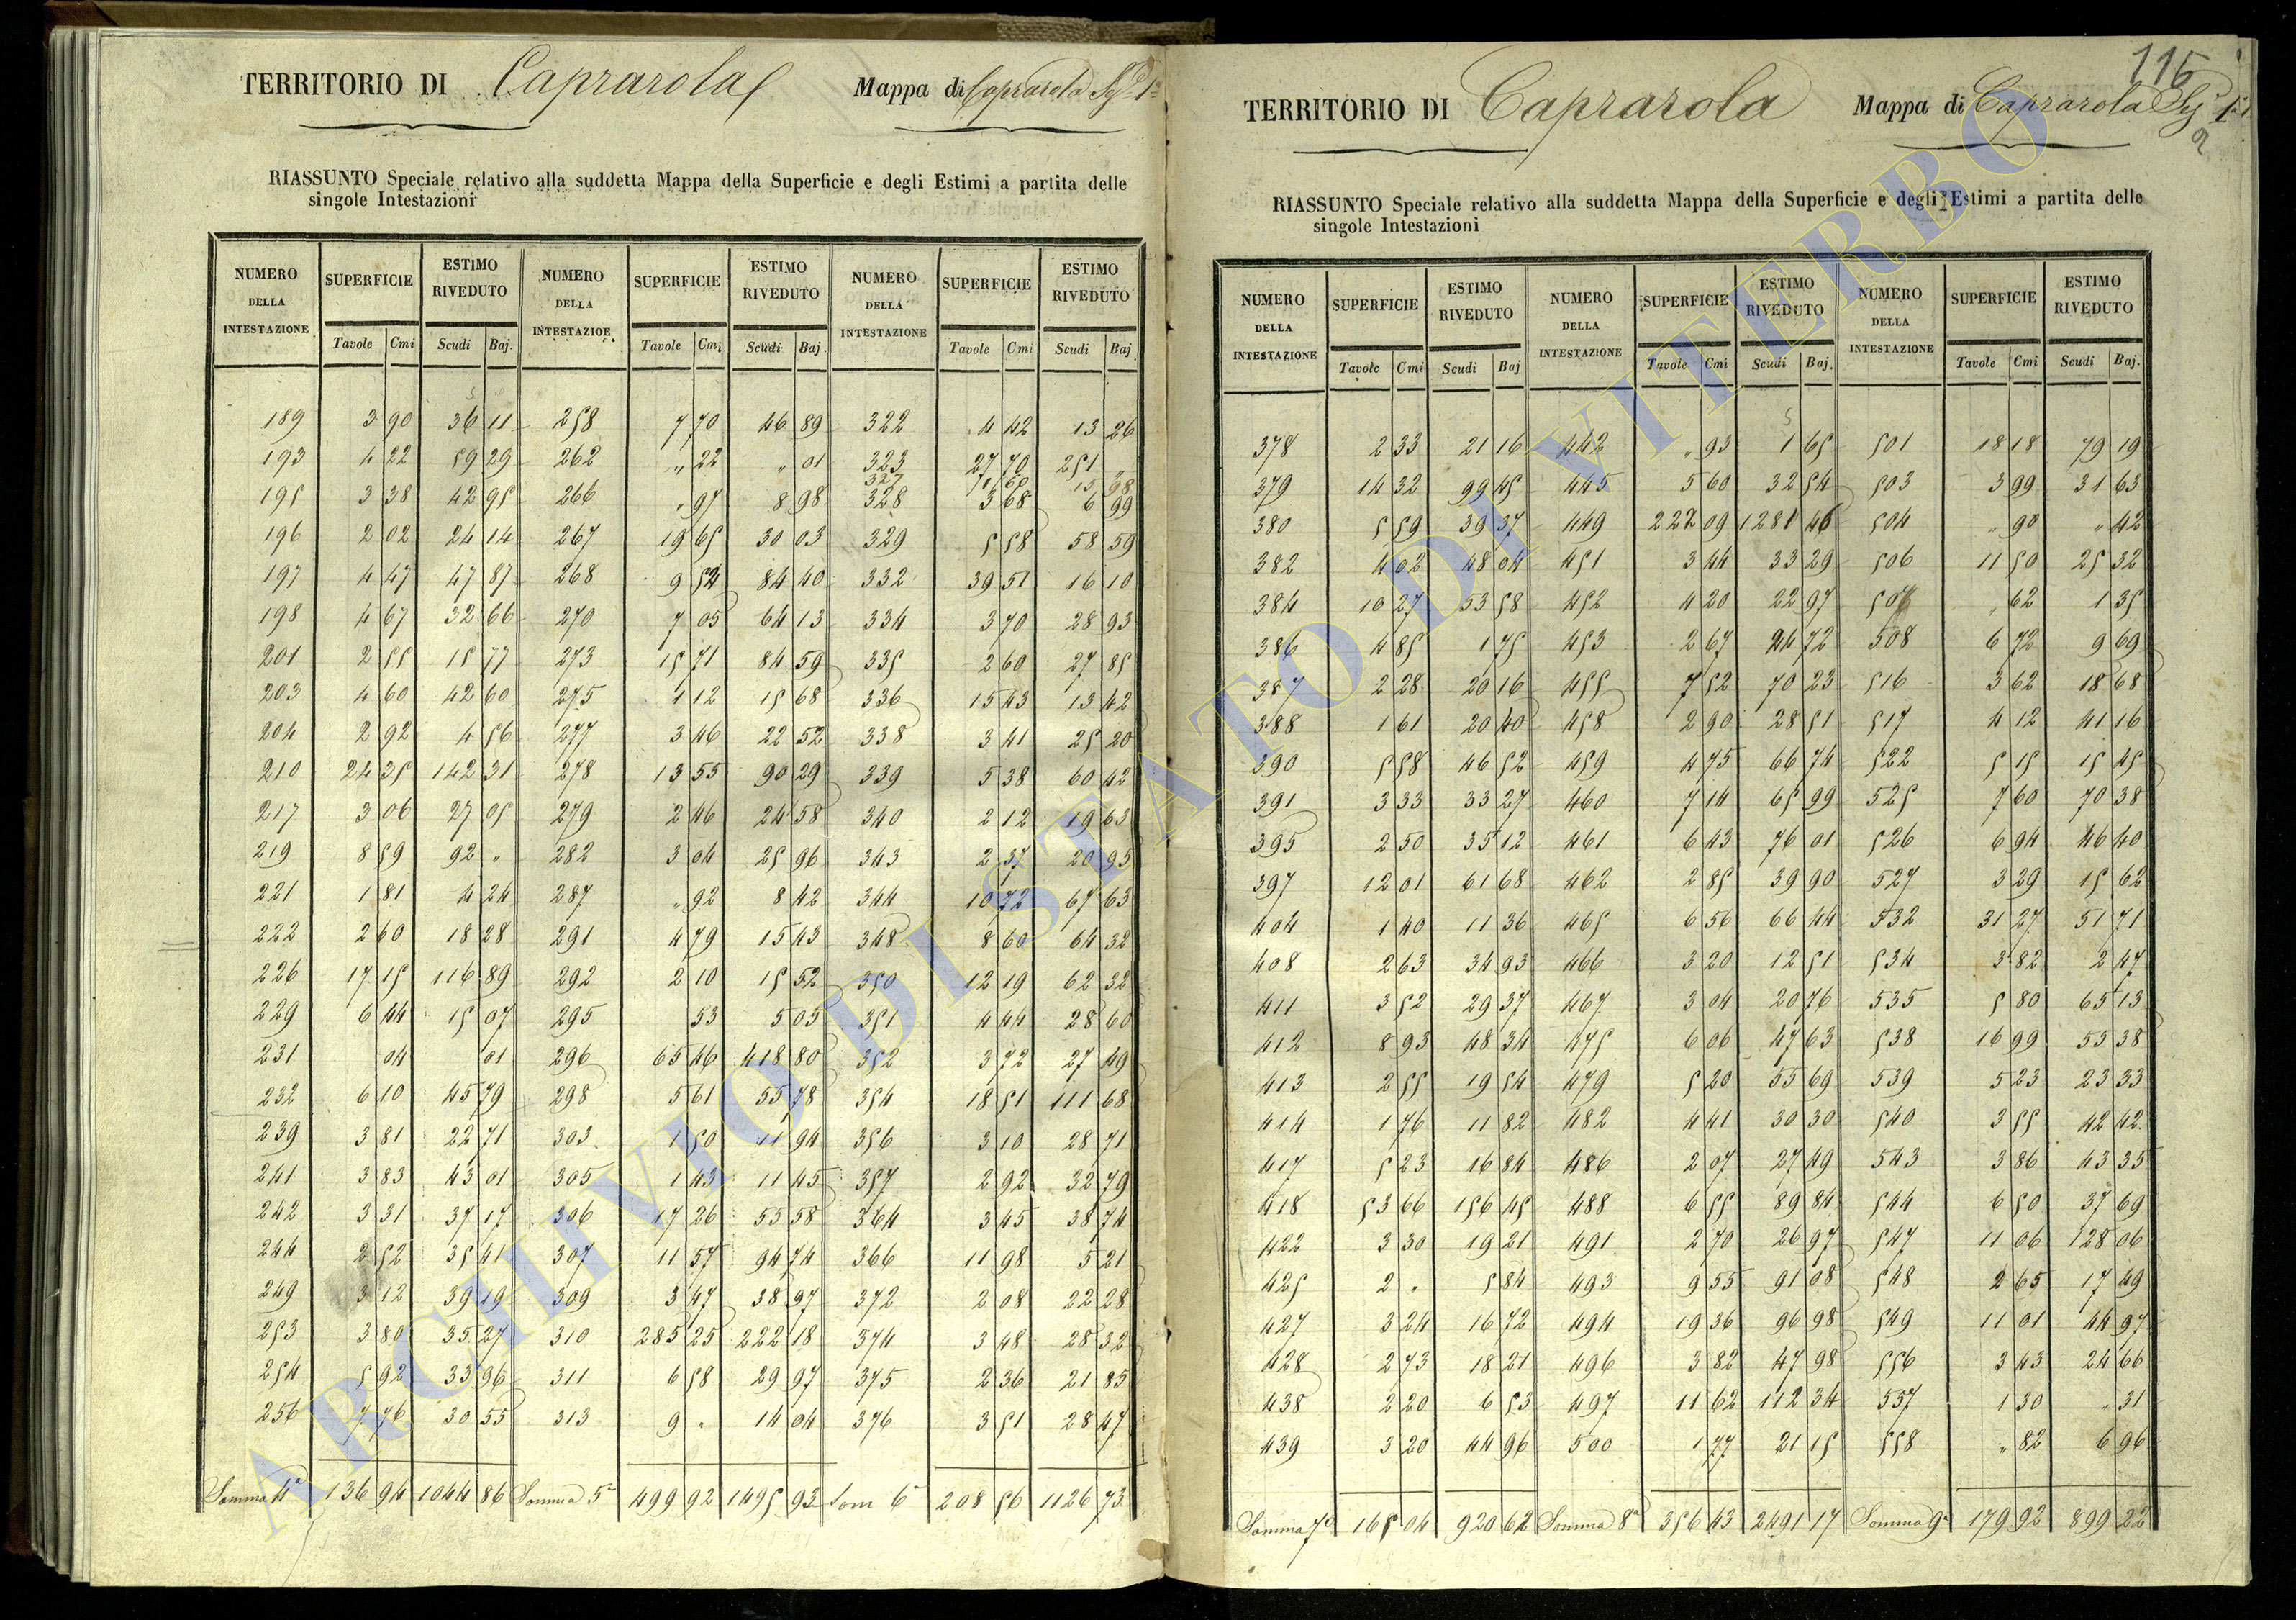 TERRITORIO DI Caprarola Mappa di Caprarola Sez. 1a
RIASSUNTO Speciale relativo alla suddetta Mappa della Superficie e degli Estimi a partita delle
singole Intestazioni
NUMERO DELLA INTESTAZIONE SUPERFICIE ESTIMO RIVEDUTO NUMERO DELLA INTESTAZIOE SUPERFICIE ESTIMO RIVEDUTO NUMERO DELLA INTESTAZIONE SUPERFICIE ESTIMO RIVEDUTO
Tavole Cmi Scudi Baj. Tavole Cmi Scudi Baj. Tavole Cmi Scudi Baj
189 3 90 36 11 258 7 70 46 89 322 4 42 13 26
193 4 22 59 29 262 „ 22 „ 01 323 27 70 251 „
327 15 98
195 3 38 42 95 266 „ 97 8 98 328 3 68 6 99
196 2 02 24 14 267 19 65 30 03 329 5 58 58 59
197 4 47 47 87 268 9 52 84 40 332 39 51 16 10
198 4 67 32 66 270 7 05 64 13 334 3 70 28 93
201 2 55 15 77 273 15 71 84 59 335 2 60 27 85
203 4 60 42 60 275 4 12 15 68 336 15 43 13 42
204 2 92 4 56 277 3 46 22 52 338 3 41 25 20
210 24 35 142 31 278 13 55 90 29 339 5 38 60 42
217 3 06 27 05 279 2 46 24 58 340 2 12 19 63
219 8 59 92 „ 282 3 04 25 96 343 2 37 20 95
221 1 81 4 24 287 „ 92 8 42 344 10 72 67 63
222 2 60 18 28 291 4 79 15 43 348 8 60 64 32
226 17 15 116 89 292 2 10 15 52 350 12 19 62 32
229 6 44 15 07 295 53 5 05 351 4 44 28 60
231 04 01 296 65 46 418 80 352 3 72 27 49
232 6 10 45 79 298 5 61 55 78 354 18 51 111 68
239 3 81 22 71 303 1 50 11 94 356 3 10 28 71
241 3 83 43 01 305 1 43 11 45 357 2 92 32 79
242 3 31 37 17 306 17 26 55 58 364 3 45 38 74
244 2 52 35 41 307 11 57 94 74 366 11 98 5 21
249 3 12 39 19 309 3 47 38 97 372 2 08 22 28
253 3 80 35 27 310 285 25 222 18 374 3 48 28 32
254 5 92 33 96 311 6 58 29 97 375 2 36 21 85
256 7 76 30 55 313 9 „ 14 04 376 3 51 28 47
Somma 4a 136 94 1044 86 Somma 5a 499 92 1495 93 Som 6a 208 56 1126 73
115
TERRITORIO DI Caprarola Mappa di Caprarola Sez 1a
2
RIASSUNTO Speciale relativo alla suddetta Mappa della Superficie e degli Estimi a partita delle
singole Intestazioni
NUMERO DELLA INTESTAZIONE SUPERFICIE ESTIMO RIVEDUTO NUMERO DELLA INTESTAZIONE SUPERFICIE ESTIMO RIVEDUTO NUMERO DELLA INTESTAZIONE SUPERFICIE ESTIMO RIVEDUTO
Tavole Cmi Scudi Baj Tavole Cmi Scudi Baj. Tavole Cmi Scudi Baj.
378 2 33 21 16 442 „ 93 1 65 501 18 18 79 19
379 14 32 99 45 445 5 60 32 54 503 3 99 31 63
380 5 59 39 37 449 222 09 1281 46 504 „ 90 „ 42
382 4 02 48 04 451 3 44 33 29 506 11 50 25 32
384 10 27 53 58 452 4 20 22 97 507 „ 62 1 35
386 4 85 1 75 453 2 67 24 72 508 6 72 9 69
387 2 28 20 16 455 7 52 70 23 516 3 62 18 68
388 1 61 20 40 458 2 90 28 51 517 4 12 41 16
390 5 58 46 52 459 4 75 66 74 522 5 15 15 45
391 3 33 33 27 460 7 14 65 99 525 7 60 70 38
395 2 50 35 12 461 6 43 76 01 526 6 94 46 40
397 12 01 61 68 462 2 85 39 90 527 3 29 15 62
404 1 40 11 36 465 6 56 66 44 532 31 27 51 71
408 2 63 34 93 466 3 20 12 51 534 3 82 2 47
411 3 52 29 37 467 3 04 20 76 535 5 80 65 13
412 8 93 48 34 475 6 06 47 63 538 16 99 55 38
413 2 55 19 54 479 5 20 55 69 539 5 23 23 33
414 1 76 11 82 482 4 41 30 30 540 3 55 42 42
417 5 23 16 84 486 2 07 27 49 543 3 86 43 35
418 53 66 156 45 488 6 55 89 84 544 6 50 37 69
422 3 30 19 21 491 2 70 26 97 547 11 06 128 06
425 2 „ 5 84 493 9 55 91 08 548 2 65 17 49
427 3 24 16 72 494 19 36 96 98 549 11 01 44 97
428 2 73 18 21 496 3 82 47 98 556 3 43 24 66
438 2 20 6 53 497 11 62 112 34 557 1 30 „ 31
439 3 20 44 96 500 1 77 21 15 558 „ 82 6 96
Somma 7a 165 04 920 62 Somma 8a 356 43 2491 17 Somma 9a 179 92 899 22
ARCHIVIO DI STATO DI VITERBO